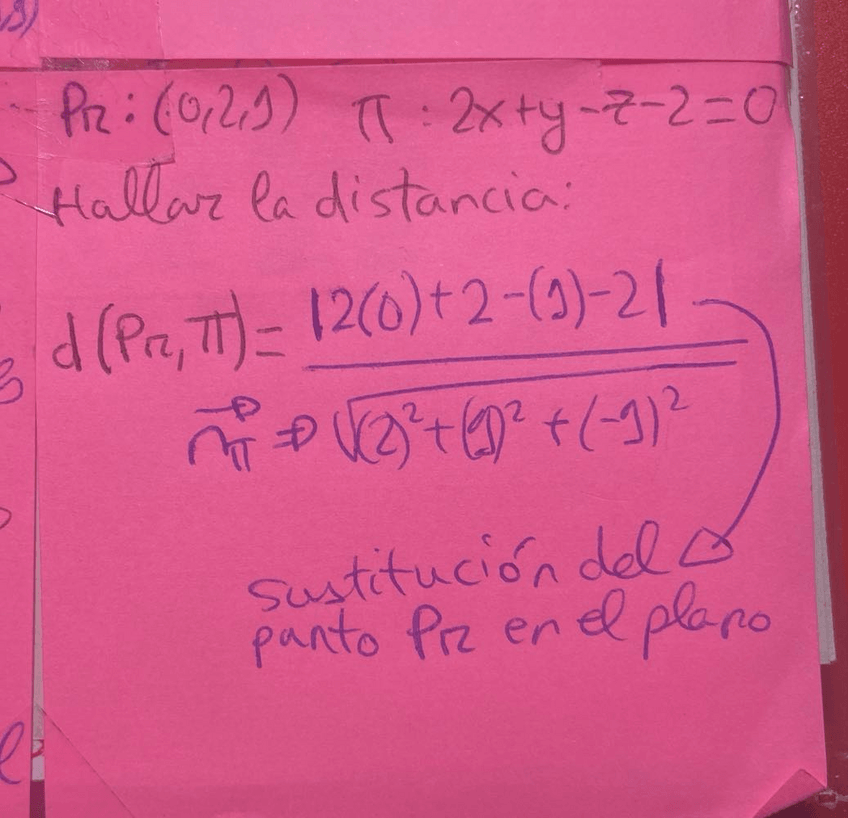 Pr: (0,2,1) π: 2x+y-z-2=0
Hallar la distancia:
d(Pr,π)= |2(0)+2-(1)-2|
n⃗π ⇒ √(2)²+(1)²+(-1)²
sustitución del
punto Pr en el plano